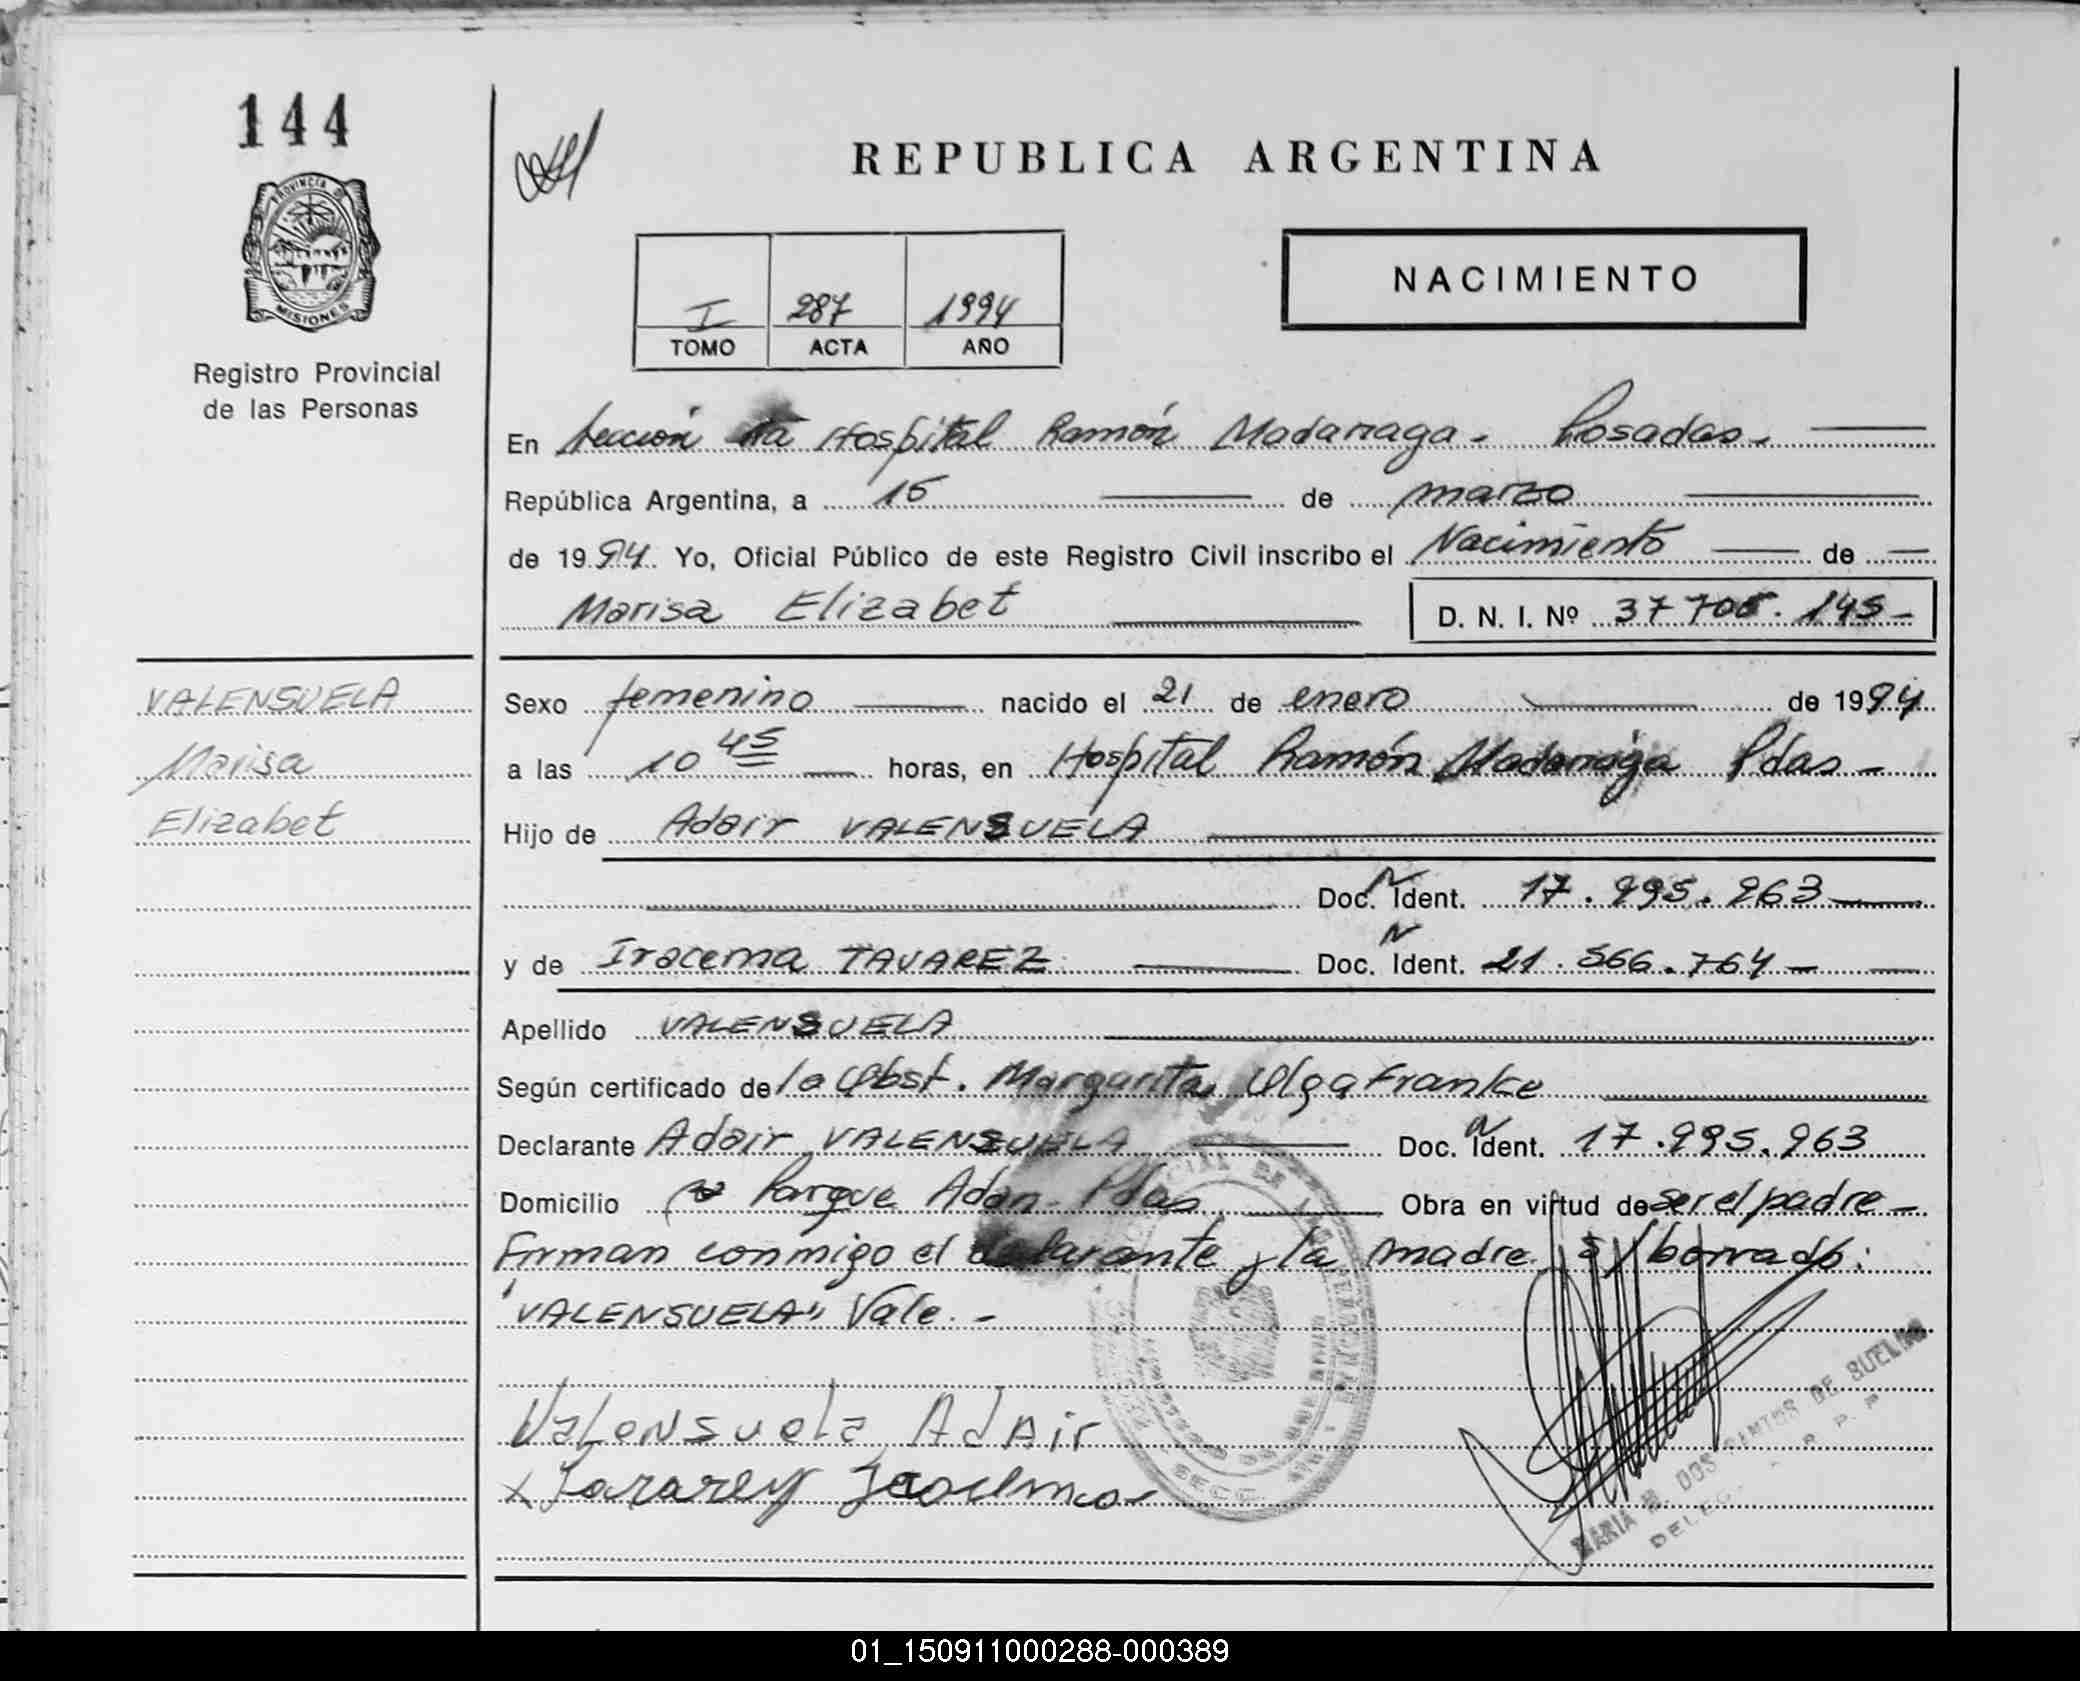 144
REPUBLICA ARGENTINA
PROVINCIA DE
MISIONES
Registro Provincial
de las Personas
NACIMIENTO
I 287 1994
TOMO ACTA AÑO
En Sección Hospital Ramón Madariaga. Posadas.
República Argentina, a 15 de marzo
de 1994. Yo, Oficial Público de este Registro Civil inscribo el Nacimiento de
Marisa Elizabet
D. N. I. Nº 37 705. 145
VALENSUELA
Marisa
Elizabet
Sexo femenino nacido el 21 de enero de 1994
a las 10 45 horas, en Hospital Ramón Madariaga Pdas
Hijo de Adair VALENSUELA
Doc. N Ident. 17.995.963
y de Iracema TAVAREZ Doc. N Ident. 21.566.764
Apellido VALENSUELA
Según certificado de la Obst. Margarita Olga Franke
Declarante Adair VALENSUELA Doc. N Ident. 17.995.963
Domicilio Parque Adan Pdas Obra en virtud de ser el padre
Firman conmigo el declarante y la madre. S/borrado:
"VALENSUELA" Vale.
Valensuela Adair
MARIA DOS SANTOS DE SUELDO
01_150911000288-000389